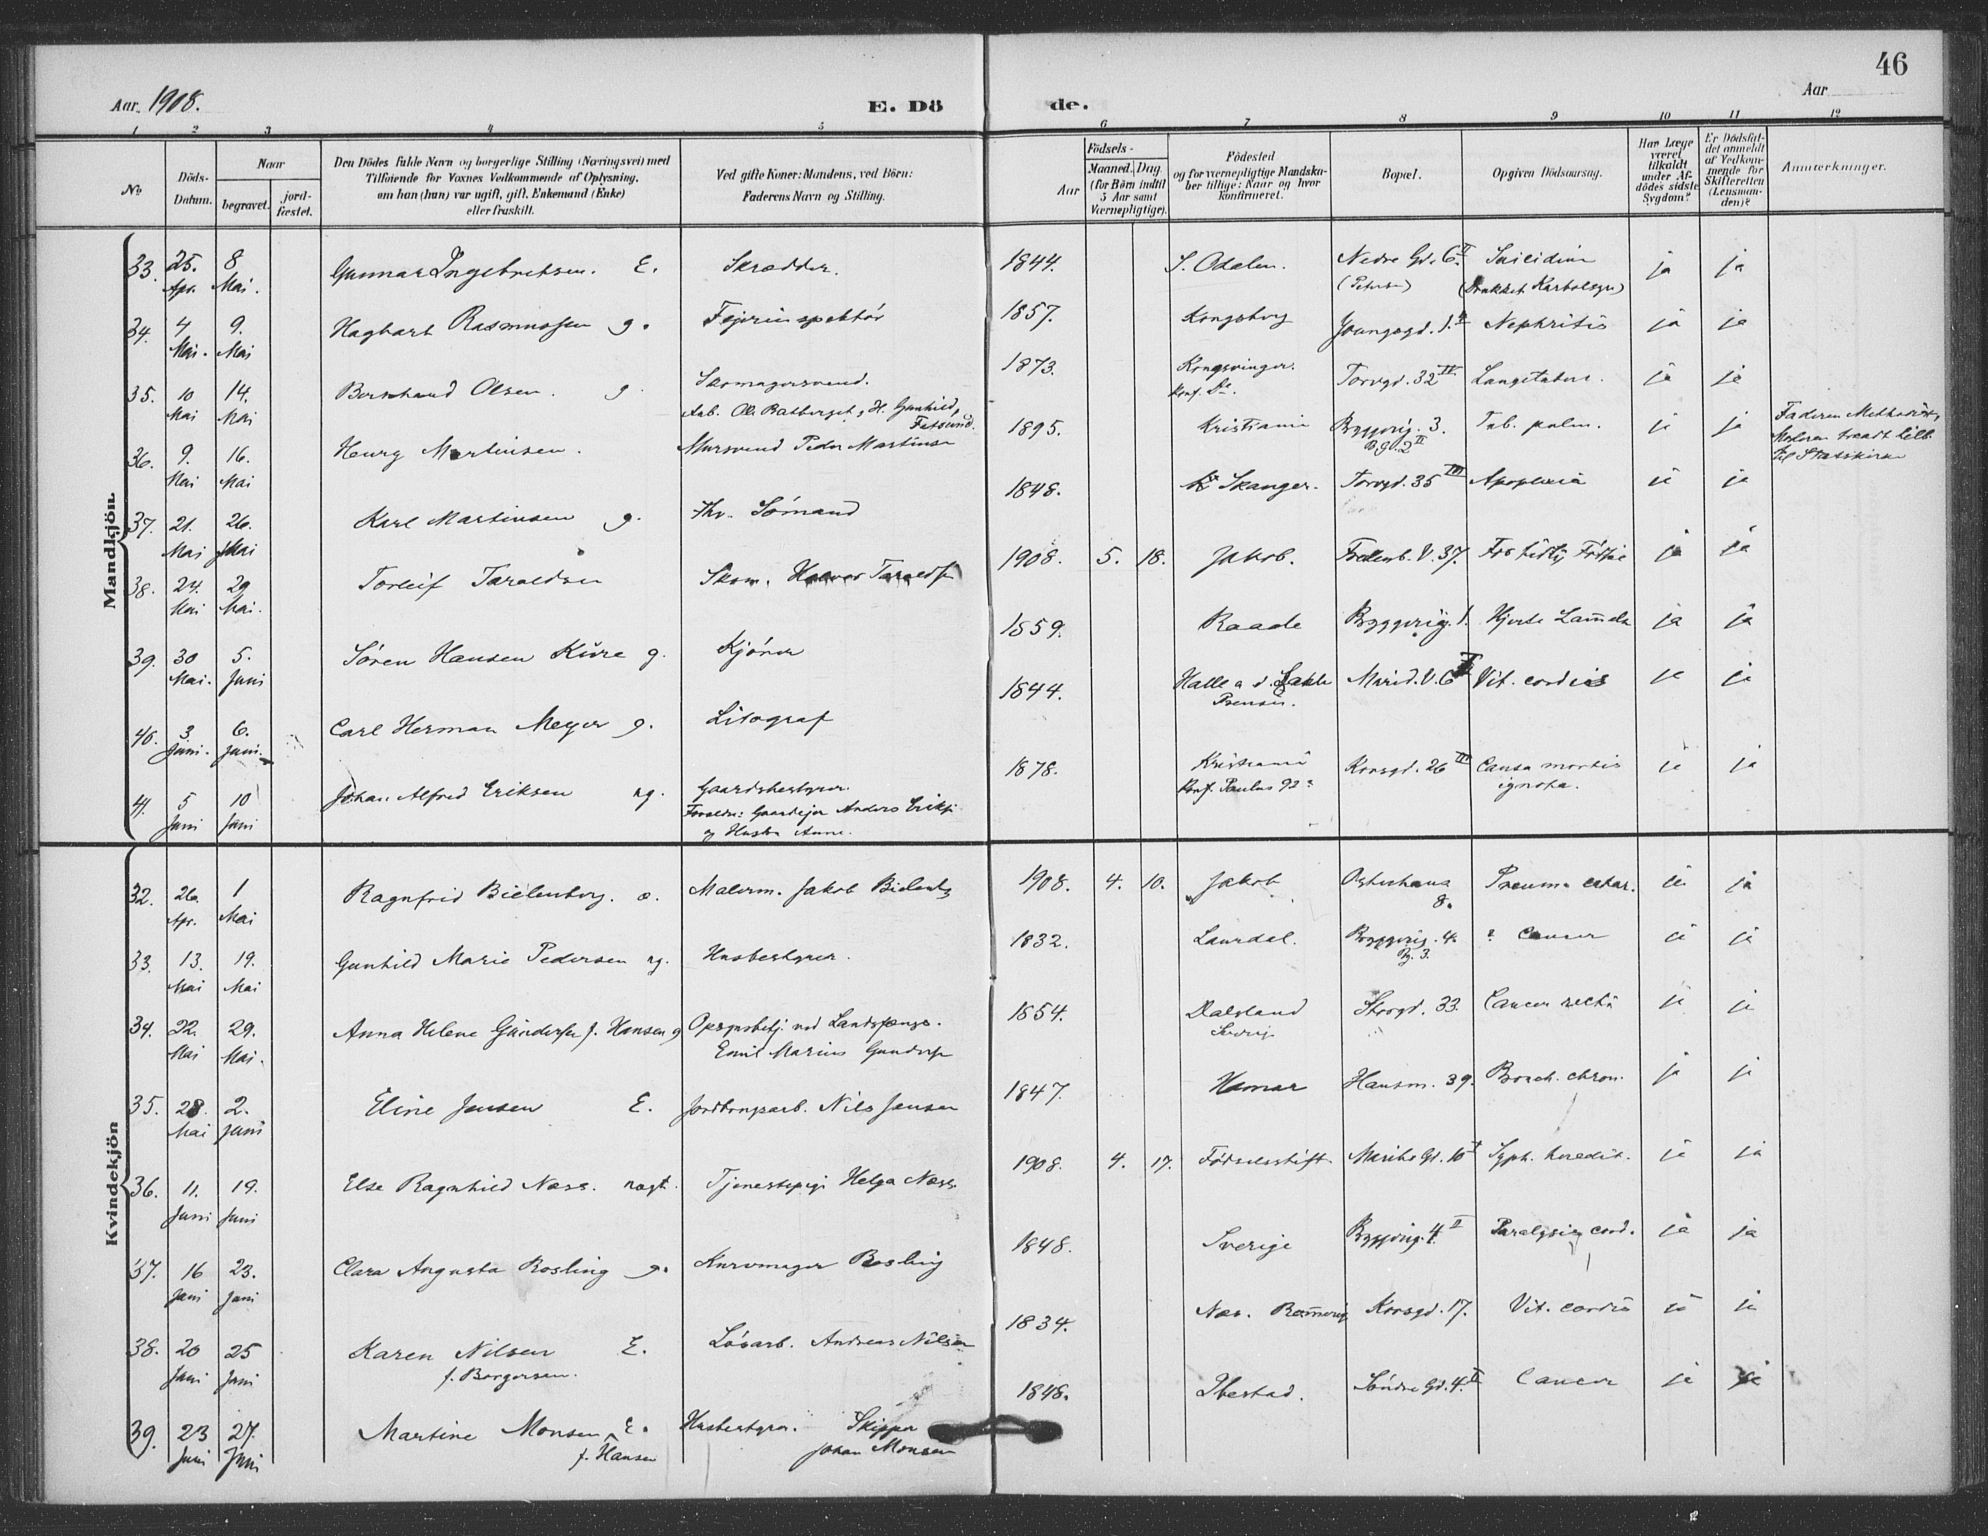 46
Aar 1908.
E. Dö
de.
Aar
1 2 3 4 5 6 7 8 9 10 11 12
No
Döds-Datum.
Naar
begravet.
jord-fæstet.
Den Dödes fulde Navn og borgerlige Stilling (Næringsvei) med
Tilføiende for Voxnes Vedkommende af Oplysning,
om han (hun) var ugift, gift, Enkemand (Enke)
eller fraskilt.
Ved gifte Koner: Mandens, ved Börn:
Faderens Navn og Stilling.
Födsels-
Aar
Maaned. Dag.
(for Börn indtil
5 Aar samt
Værnepligtige).
Födested
og for værnepligtige Mandska-
ber tillige: Naar og hvor
konfirmeret.
Bopæl.
Opgiven Dödsaarsag.
Har Læge
været
tilkaldt
under Af-
dödes sidste
Sygdom?
Er Dödsfal-
det anmeldt
af Vedkom-
mende for
Skifteretten
(Lensman-
den)?
Anmerkninger.
Mandkjön.
33. 25. Apr. 8 Mai. Gunnar Ingebretsen. E. Skrædder. 1844. S. Odalen. Nedre Gd. 6 II Suicidium ja ja
(Drukket Karbolsyre)
34. 4 Mai. 9. Mai Haghart Rasmussen g. Fejerinspektör 1857. Kongsberg Youngsgd. 1. II Nephritis ja ja
35. 10 Mai 14. Mai Bernhard Olsen. g. Skomagersvend. 1873. Kongsvinger. Torvgd. 32 IV Lungetuberc. ja ja
Konf. Do.
Arb. Ole Ratberget, H. Gunhild,
Fetsund.
36. 9. Mai 16. Mai Henry Martinsen. Mursvend Peder Martinsen 1895. Kristiania Byggverig. 3. Tub. pulm. ja ja Faderen Methodist,
Bg. 2 II
Moderen traadt tilb.
til Statskirken
37. 21. Mai 26. Mai Karl Martinsen g. Fhv. Sömand 1848. Skanger. Torvgd. 35 III Apoplexia ja ja
38. 24. Mai 29 Mai. Torleif Taraldsen Skom. Taraldsen 1908. 5. 18. Jakob. Fredensb. V. 37. For tidlig Födsel ja ja
39. 30 Mai. 5. Juni Sören Hansen Kure g. Kjörer 1859. Raade Byggverig. 1. Hjerte Lamelse ja ja
40. 3 Juni. 6. Juni. Carl Herman Meyer g. Litograf 1844. Halle a. d. Saale Marid. V. 6 Vit. cordis ja ja
Preusen.
41. 5 Juni 10 Juni Johan Alfred Eriksen ug. Gaardsbestyrer. 1878. Kristiania Korsgd. 26 III Causa mortis ja ja
Konf. Paulus 92 ignota.
Forældre: Gaardejer Anders Eriks.
og Hustru Anne.
Kvindekjön
32. 26. Apr. 1 Mai Ragnfrid Bielenberg. æ. Malerm. Jakob Bielenbg 1908. 4. 10. Jakob Osterhaus 8. Pneum. catar. ja ja
33. 13. Mai 19. Mai Gunhild Marie Pedersen ug. Husbestyrer. 1832. Laurdal. Byggverig. 4. ? Cancer ja ja
Bg. 3.
34. 22. Mai 29. Mai. Anna Helene Gundersen f. Hansen g Opsynsbetj. ved Landsfængs. 1854. Dalsland Storgd. 33. Cancer recti ja ja
Emil Marius Gunders. Sverig
35. 28. Mai 2. Juni Eline Jensen E. Jordbrugsarb. Nils Jensen 1847. Hamar Hausm. 39. Bronch. chron. ja ja
36. 11. Juni 19. Juni Else Ragnhild Næss. uægt. Tjenestepige Helga Næss. 1908. 4. 17. Födselsstift. Maribo Gd. 10 I Syph. heredit. ja ja
37. 16 Juni 23. Juni Clara Augusta Rosling g. Kurvmager Rosling 1848. Sverige Byggverig. 4 II Paralysis cord. ja ja
38. 20 Juni 25 Juni Karen Nilsen E. Lösarb. Andreas Nilsen 1834. Næs. Romerig. Korsgd. 17. Vit. cordis ja ja
f. Borgersen.
39. 23 Juni 27. Juni Martine Monsen E. Husbestyrer. Skipper 1848. Ibestad. Söndre Gd. 4. II Cancer ja ja
f. Hansen Johan Monsen